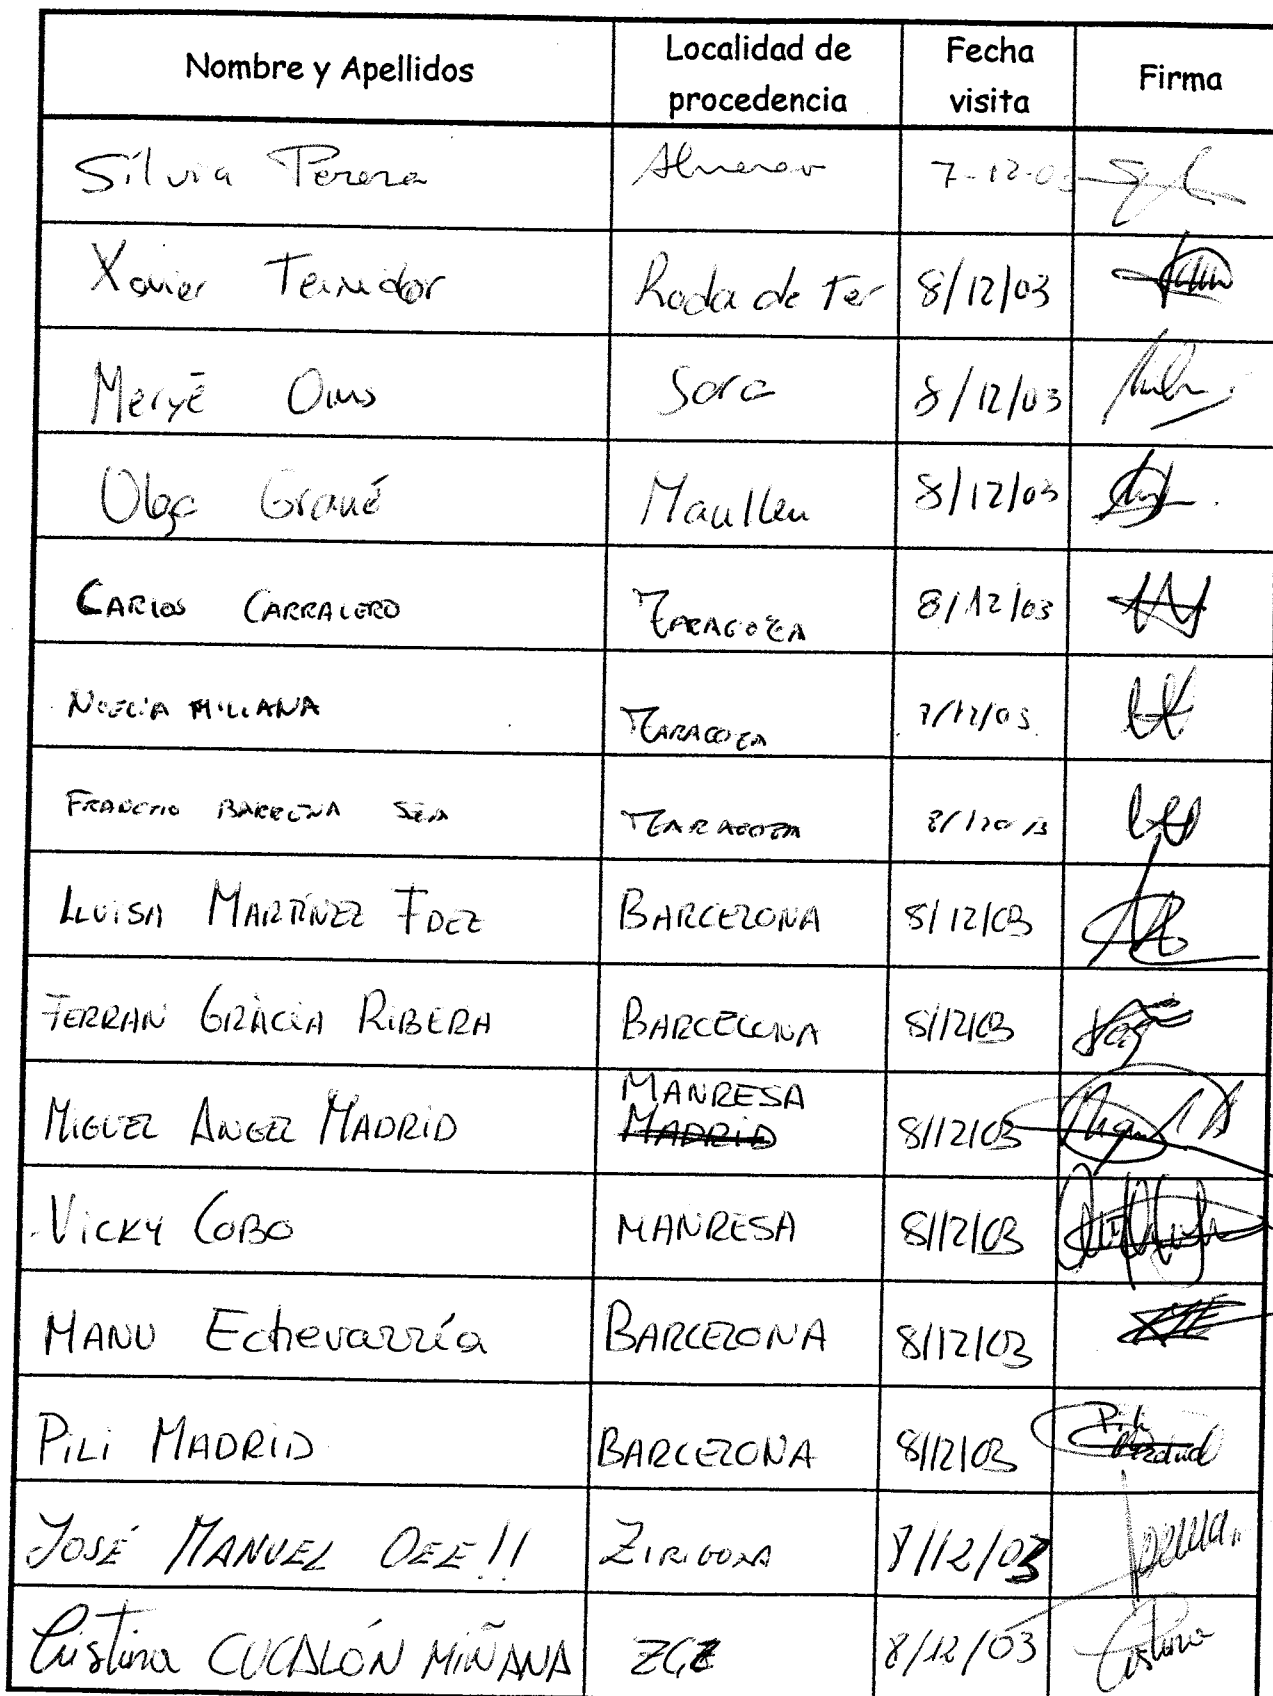 Nombre y Apellidos Localidad de procedencia Fecha visita Firma
Sílvia Perera 7-12-0
Xavier Teixidor Roda de Ter 8/12/03
Meryè Oms Sora 8/12/03
Olga Grané Manlleu 8/12/03
CARLOS CARRALERO ZARAGOZA 8/12/03
NOELIA MILLANA ZARAGOZA /12/03
BARCELONA ZARAGOZA
LLUISA MARTÍNEZ FDEZ BARCELONA 8/12/03
FERRAN GRÀCIA RIBERA BARCELONA 8/12/03
MIGUEL ANGEL MADRID MANRESA MADRID 8/12/03
VICKY COBO MANRESA 8/12/03
MANU Echevarría BARCELONA 8/12/03
PILI MADRID BARCELONA 8/12/03 Pili Madrid
JOSÉ MANUEL OEE!! ZIRIGOZA 8/12/03
Cristina CUCALÓN MIÑANA ZGZ 8/12/03 Cristina